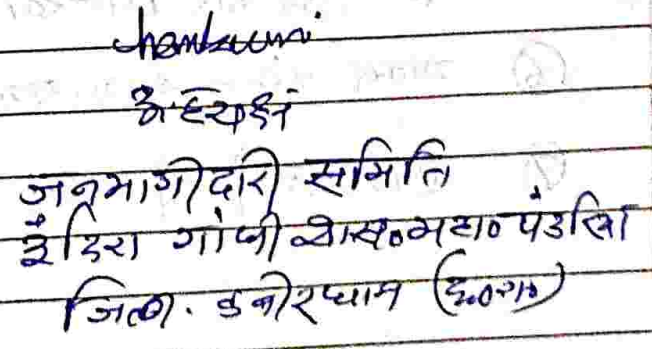 अध्यक्ष
जनभागीदारी समिति
इंदिरा गांधी शास० महा० पंडरिया
जिला. कबीरधाम (छ०ग०)